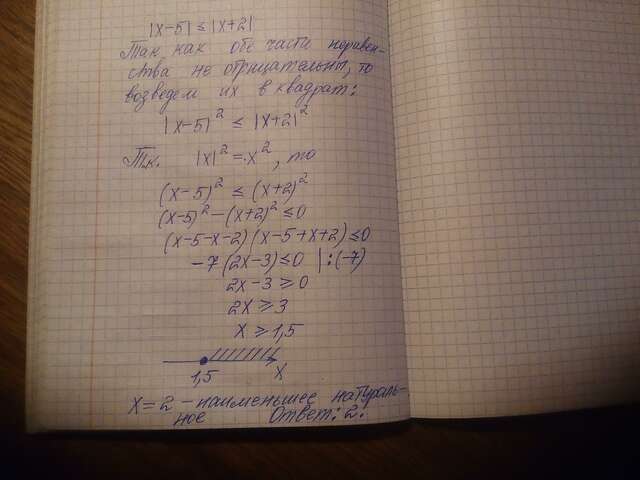 |x-5| ≤ |x+2|
Так как обе части неравен-
ства не отрицательны, то
возведем их в квадрат:
|x-5|² ≤ |x+2|²
Т.к. |x|² = x², то
(x-5)² ≤ (x+2)²
(x-5)² - (x+2)² ≤ 0
(x-5-x-2)(x-5+x+2) ≤ 0
-7(2x-3) ≤ 0 | :(-7)
2x-3 ≥ 0
2x ≥ 3
x ≥ 1,5
1,5 x
x=2 - наименьшее натураль-
ное Ответ: 2.